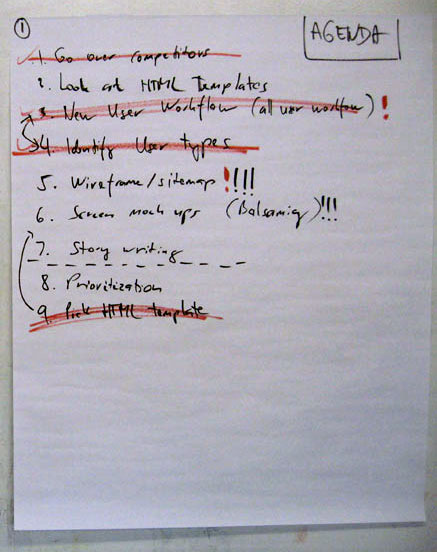 ① AGENDA
1. Go over competitors
2. Look at HTML Templates
3. New User Workflow (all user workflow) !
4. Identify User types
5. Wireframe/sitemap !!!!!
6. Screen mock ups (Balsamiq)!!!
7. Story writing
8. Prioritization
9. Pick HTML template